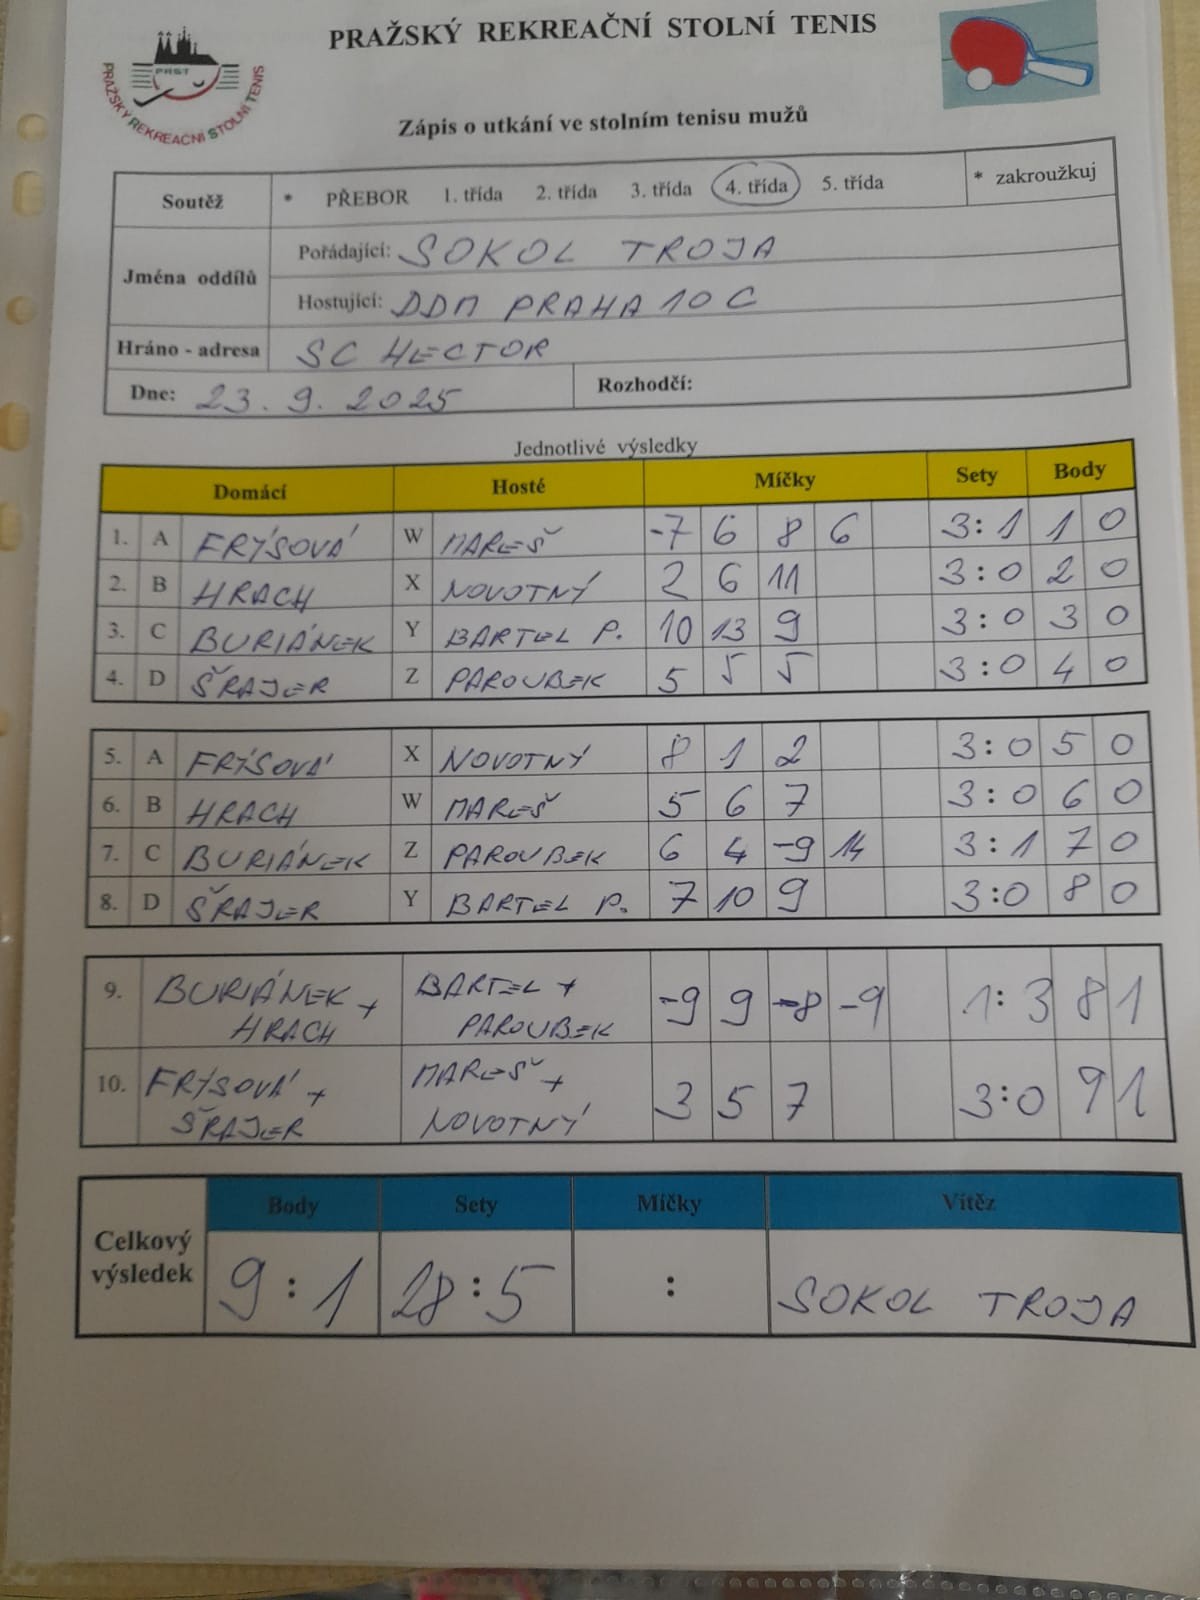 PRAŽSKÝ REKREAČNÍ STOLNÍ TENIS
PRST
PRAŽSKÝ REKREAČNÍ STOLNÍ TENIS
Zápis o utkání ve stolním tenisu mužů
Soutěž * PŘEBOR 1. třída 2. třída 3. třída 4. třída 5. třída * zakroužkuj
Jména oddílů
Pořádající: SOKOL TROJA
Hostující: DDM PRAHA 10 C
Hráno - adresa SC HECTOR
Dne: 23. 9. 2025 Rozhodčí:
Jednotlivé výsledky
Domácí Hosté Míčky Sety Body
1. A FRÝSOVÁ W MAREŠ -7 6 8 6 3:1 1 0
2. B HRACH X NOVOTNÝ 2 6 11 3:0 2 0
3. C BURIÁNEK Y BARTEL P. 10 13 9 3:0 3 0
4. D ŠRAJER Z PAROUBEK 5 5 5 3:0 4 0
5. A FRÝSOVÁ X NOVOTNÝ 8 1 2 3:0 5 0
6. B HRACH W MAREŠ 5 6 7 3:0 6 0
7. C BURIÁNEK Z PAROUBEK 6 4 -9 14 3:1 7 0
8. D ŠRAJER Y BARTEL P. 7 10 9 3:0 8 0
9. BURIÁNEK + BARTEL + -9 9 -8 -9 1:3 8 1
HRACH PAROUBEK
10. FRÝSOVÁ + MAREŠ + 3 5 7 3:0 9 1
ŠRAJER NOVOTNÝ
Body Sety Míčky Vítěz
Celkový
výsledek
9:1 28:5 : SOKOL TROJA